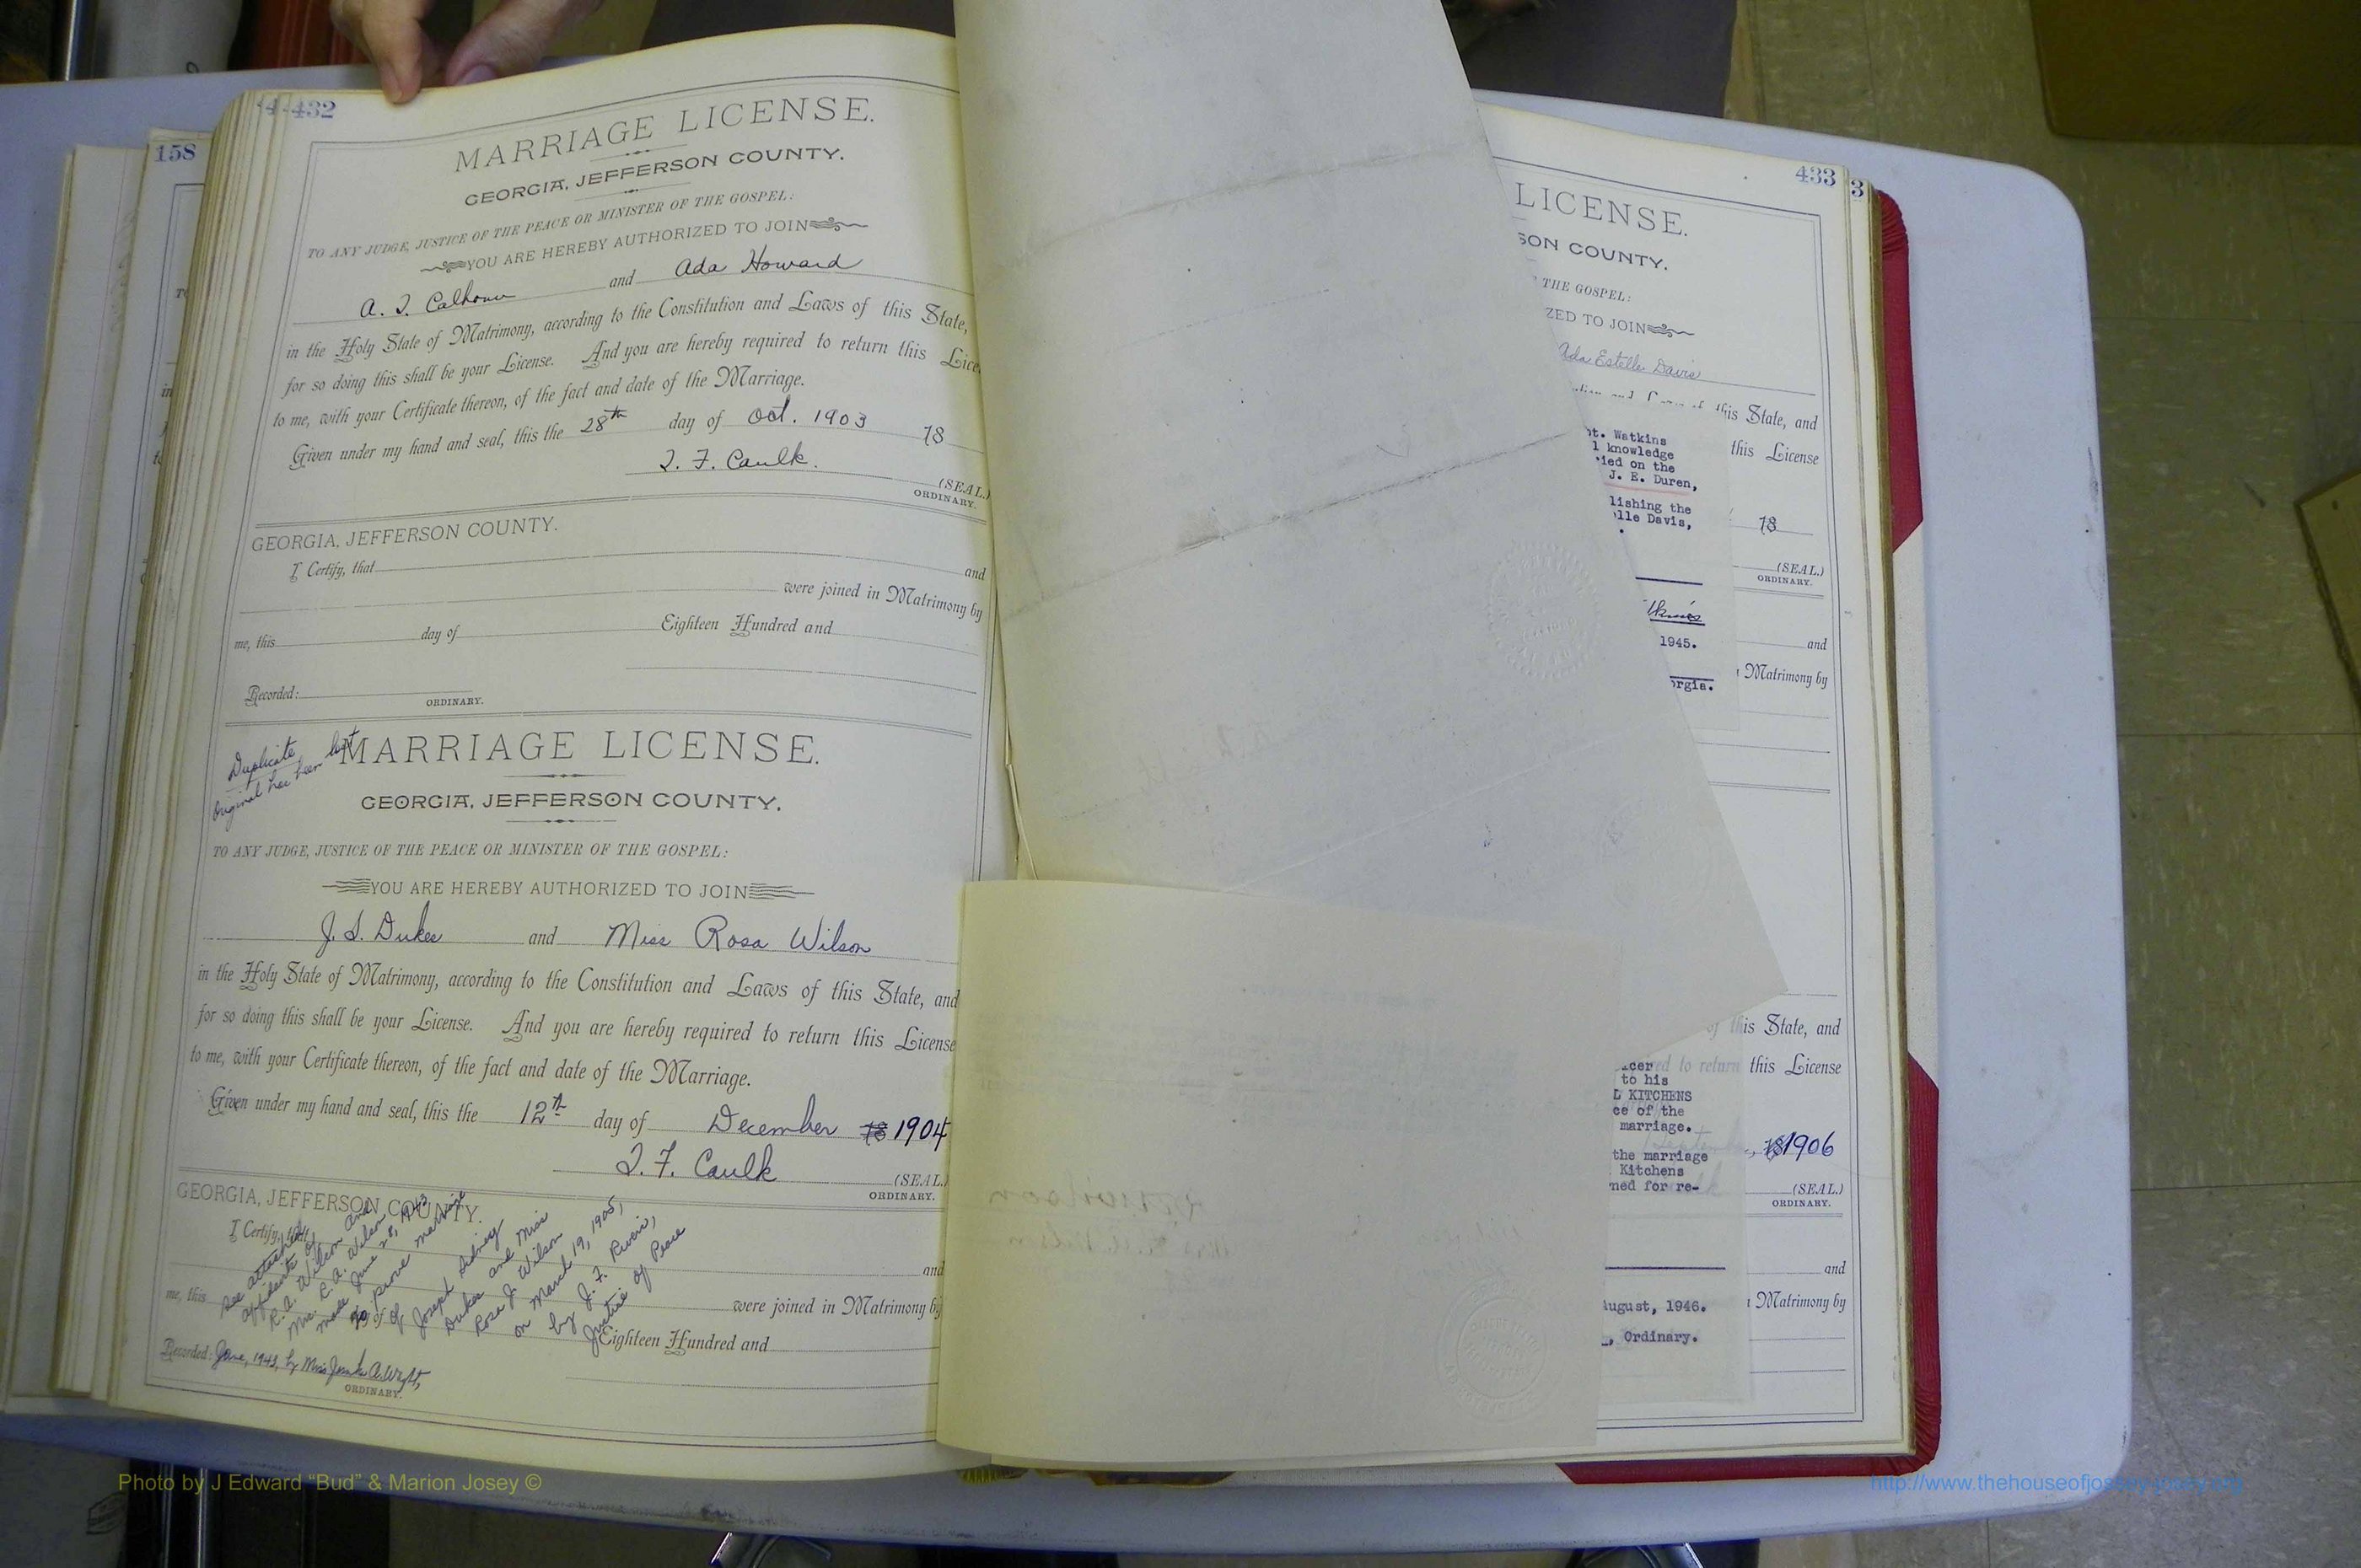 158
432
MARRIAGE LICENSE.
GEORGIA, JEFFERSON COUNTY.
TO ANY JUDGE, JUSTICE OF THE PEACE OR MINISTER OF THE GOSPEL:
YOU ARE HEREBY AUTHORIZED TO JOIN
A. J. Calhoun and Ada Howard
in the Holy State of Matrimony, according to the Constitution and Laws of this State,
for so doing this shall be your License. And you are hereby required to return this Lice
to me, with your Certificate thereon, of the fact and date of the Marriage.
Given under my hand and seal, this the 28th day of Oct. 1903 18
J. F. Caulk.
(SEAL.)
ORDINARY.
GEORGIA, JEFFERSON COUNTY.
I Certify, that and
were joined in Matrimony by
me, this day of Eighteen Hundred and
Recorded:
ORDINARY.
Duplicate
Original has been lost
MARRIAGE LICENSE.
GEORGIA, JEFFERSON COUNTY.
TO ANY JUDGE, JUSTICE OF THE PEACE OR MINISTER OF THE GOSPEL:
YOU ARE HEREBY AUTHORIZED TO JOIN
J. S. Dukes and Miss Rosa Wilson
in the Holy State of Matrimony, according to the Constitution and Laws of this State, and
for so doing this shall be your License. And you are hereby required to return this License
to me, with your Certificate thereon, of the fact and date of the Marriage.
Given under my hand and seal, this the 12th day of December 18 1904
J. F. Caulk
(SEAL.)
ORDINARY.
GEORGIA, JEFFERSON COUNTY.
I Certify, that
and
me, this were joined in Matrimony by
Eighteen Hundred and
See attached
affidavits of
R. A. Wilson and
Mrs. R. A. Wilson
made June 28, 1943
to prove marriage
of Joseph Sidney
Dukes and Miss
Rosa J. Wilson
on March 19, 1905,
by J. F. Rivers,
Justice of Peace
Recorded: June, 1943, by Miss A. Wright,
ORDINARY.
433
3
LICENSE.
SON COUNTY.
THE GOSPEL:
ZED TO JOIN
Ada Estelle Davis
this State, and
this License
pt. Watkins
l knowledge
ried on the
J. E. Duren,
lishing the
lle Davis,
18
(SEAL.)
ORDINARY.
1945.
and
Matrimony by
orgia.
of this State, and
ed to return this License
cer
to his
D KITCHENS
ce of the
marriage.
18 1906
the marriage
Kitchens
ned for re-
(SEAL.)
ORDINARY.
and
August, 1946.
Matrimony by
, Ordinary.
Photo by J Edward “Bud” & Marion Josey ©